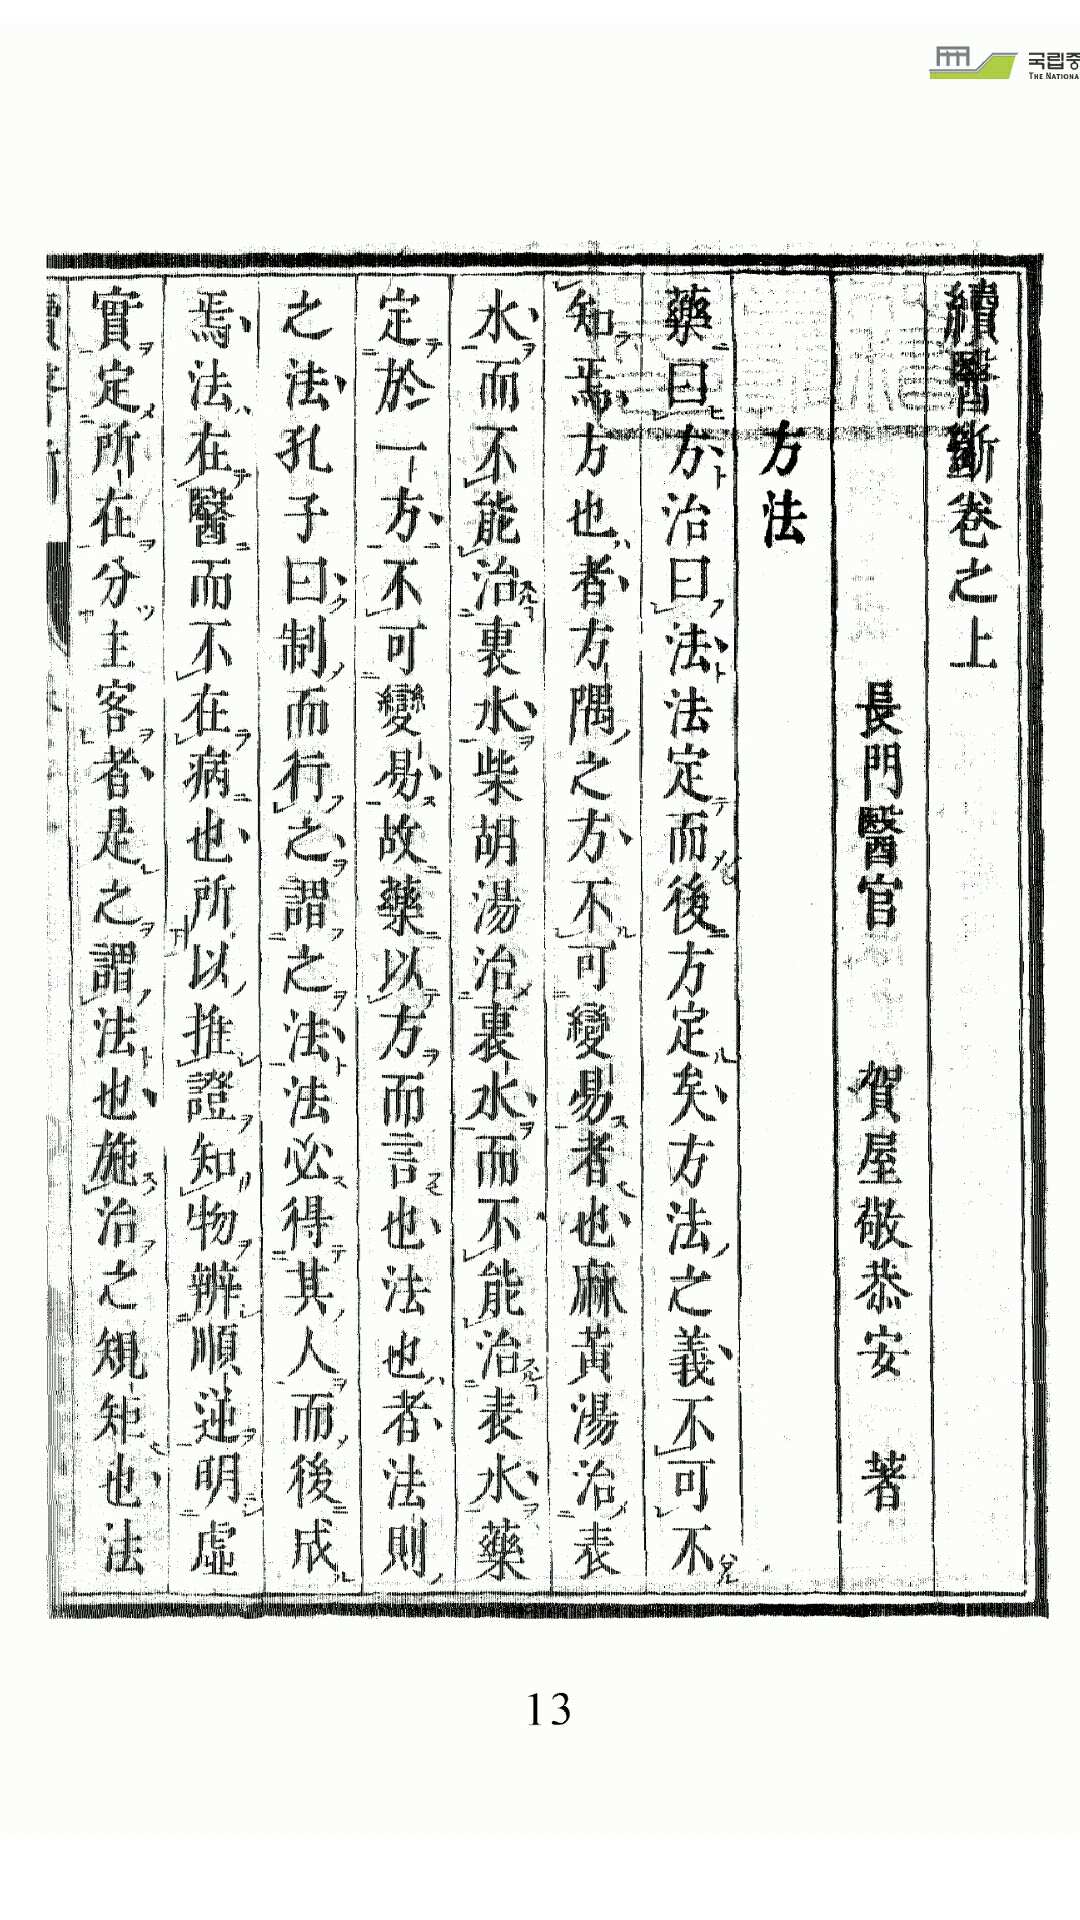 국립중
THE NATIONA
續醫斷卷之上
長門醫官 賀屋敬恭安 著
方法
藥曰方治曰法法定而後方定矣方法之義不可不
知焉方也者方隅之方不可變易者也麻黃湯治表
水而不能治裏水柴胡湯治裏水而不能治表水藥
定於一方不可變易故藥以方而言也法也者法則
之法孔子曰制而行之謂之法法必得其人而後成
焉法在醫而不在病也所以推證知物辨順逆明虛
實定所在分主客者是之謂法也施治之規矩也法
13